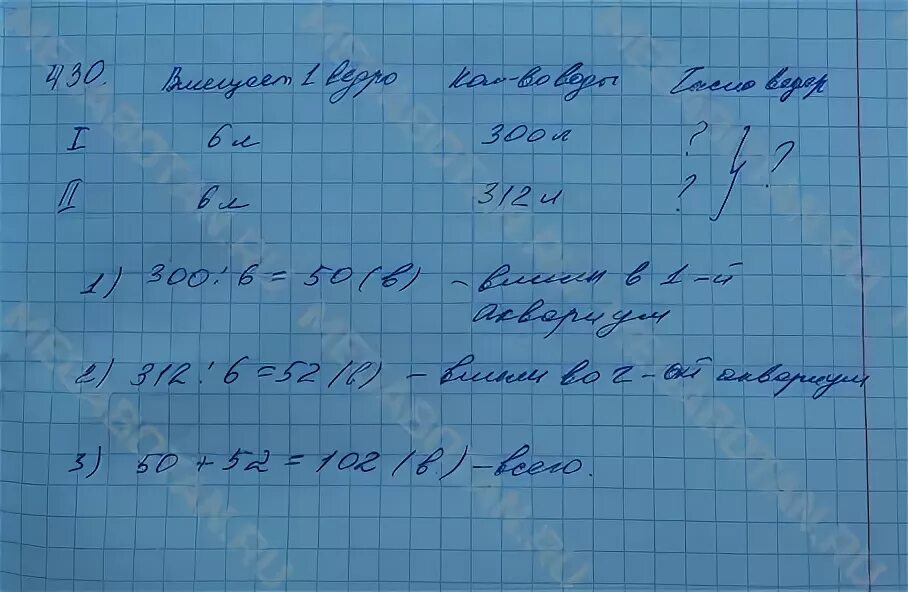 430. Вмещает 1 ведро Кол-во воды Число ведер
I 6 л 300 л ? } ?
II 6 л 312 л ?
1) 300 : 6 = 50 (в) - влили в 1-й
аквариум
2) 312 : 6 = 52 (в) - влили во 2-ой аквариум
3) 50 + 52 = 102 (в) - всего.
MEGABOTAN.RU